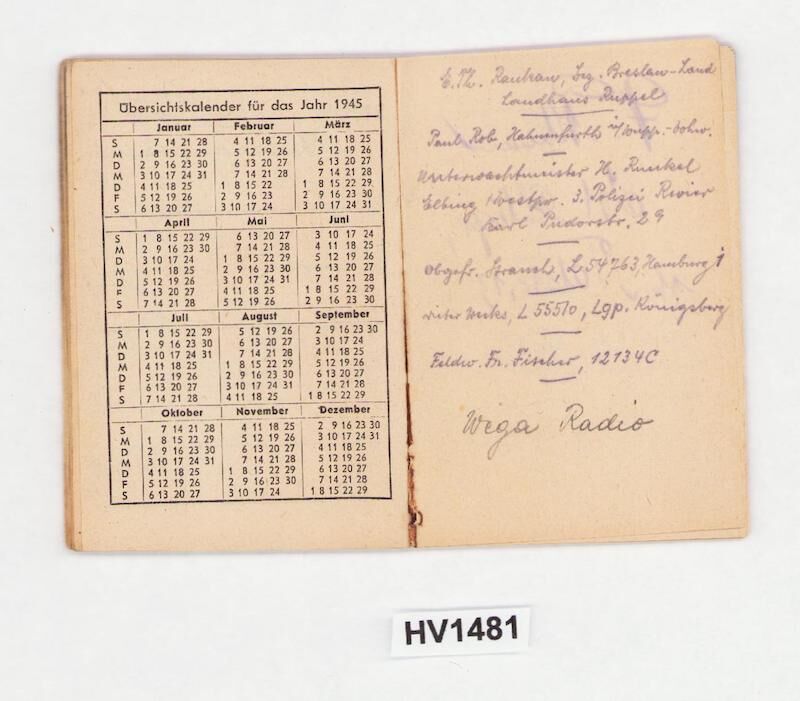 Übersichtskalender für das Jahr 1945
Januar Februar März
S 7 14 21 28 4 11 18 25 4 11 18 25
M 1 8 15 22 29 5 12 19 26 5 12 19 26
D 2 9 16 23 30 6 13 20 27 6 13 20 27
M 3 10 17 24 31 7 14 21 28 7 14 21 28
D 4 11 18 25 1 8 15 22 1 8 15 22 29
F 5 12 19 26 2 9 16 23 2 9 16 23 30
S 6 13 20 27 3 10 17 24 3 10 17 24 31
April Mai Juni
S 1 8 15 22 29 6 13 20 27 3 10 17 24
M 2 9 16 23 30 7 14 21 28 4 11 18 25
D 3 10 17 24 1 8 15 22 29 5 12 19 26
M 4 11 18 25 2 9 16 23 30 6 13 20 27
D 5 12 19 26 3 10 17 24 31 7 14 21 28
F 6 13 20 27 4 11 18 25 1 8 15 22 29
S 7 14 21 28 5 12 19 26 2 9 16 23 30
Juli August September
S 1 8 15 22 29 5 12 19 26 2 9 16 23 30
M 2 9 16 23 30 6 13 20 27 3 10 17 24
D 3 10 17 24 31 7 14 21 28 4 11 18 25
M 4 11 18 25 1 8 15 22 29 5 12 19 26
D 5 12 19 26 2 9 16 23 30 6 13 20 27
F 6 13 20 27 3 10 17 24 31 7 14 21 28
S 7 14 21 28 4 11 18 25 1 8 15 22 29
Oktober November Dezember
S 7 14 21 28 4 11 18 25 2 9 16 23 30
M 1 8 15 22 29 5 12 19 26 3 10 17 24 31
D 2 9 16 23 30 6 13 20 27 4 11 18 25
M 3 10 17 24 31 7 14 21 28 5 12 19 26
D 4 11 18 25 1 8 15 22 29 6 13 20 27
F 5 12 19 26 2 9 16 23 30 7 14 21 28
S 6 13 20 27 3 10 17 24 1 8 15 22 29
E. Th. Rankau, Brg. Breslau-Land
Landhaus Ruppel
Paul Rob, Hahnenfurth
Unterwachtmeister H. Runkel
Elbing Westpr. 3. Polizei Revier
Karl Pudorstr. 29
Obgefr. Strauch, L 54763, Hamburg 1
L 55510, Lgp. Königsberg
Feldw. Fr. Fischer, 12134C
Wega Radio
HV1481